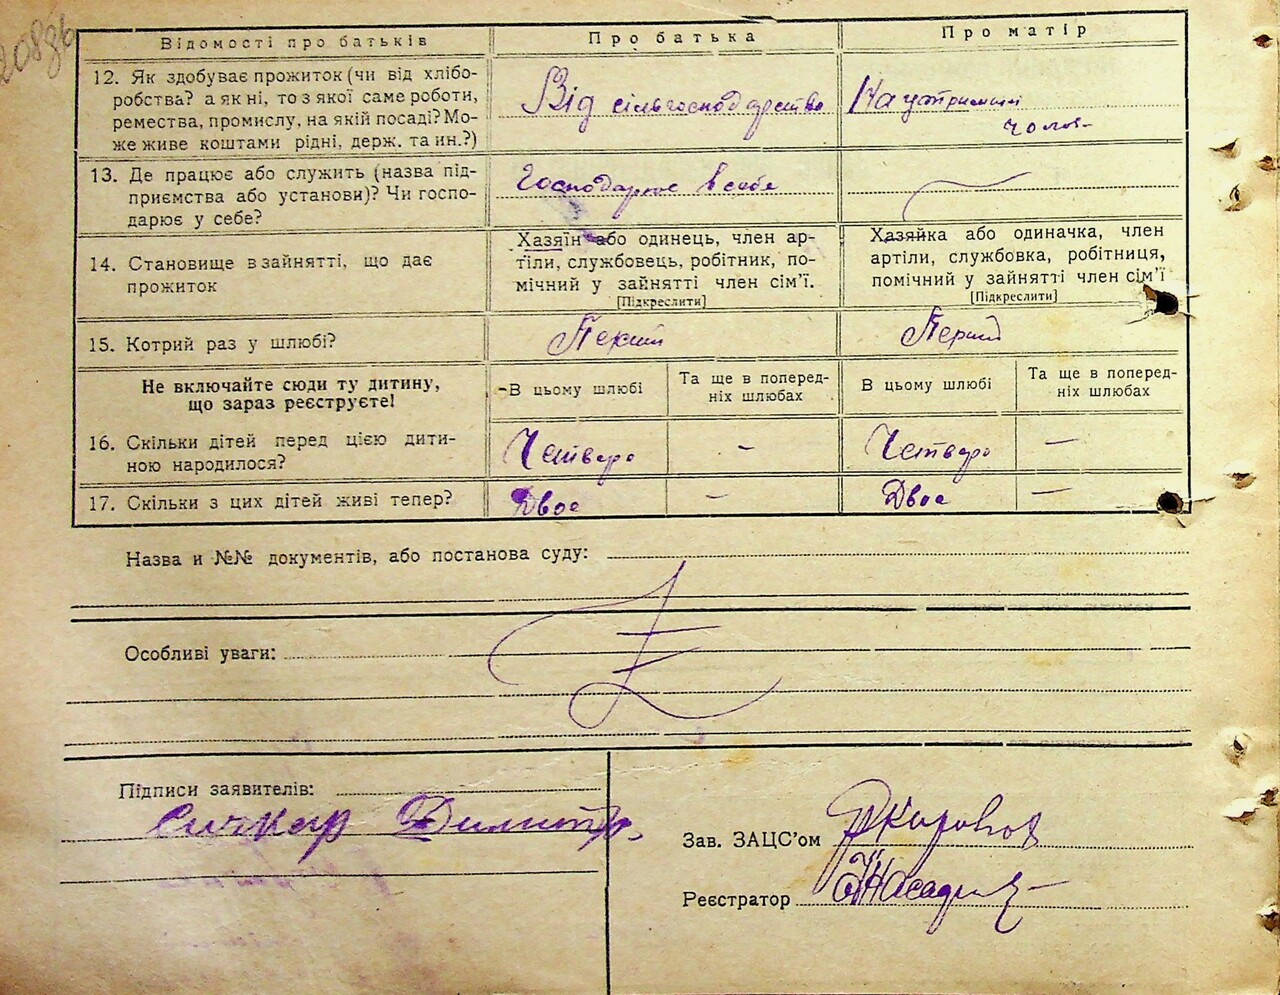 208зв
Відомості про батьків
Про батька
Про матір
12. Як здобуває прожиток (чи від хлібо-
робства? а як ні, то з якої саме роботи,
ремества, промислу, на якій посаді? Мо-
же живе коштами рідні, держ. та ин.?)
Від сільгосподарства
На утриманні
чолов.
13. Де працює або служить (назва під-
приємства або установи)? Чи госпо-
дарює у себе?
Господарює в себе
14. Становище в зайнятті, що дає
прожиток
Хазяїн або одинець, член ар-
тіли, службовець, робітник, по-
мічний у зайнятті член сім'ї.
[Підкреслити]
Хазяйка або одиначка, член
артіли, службовка, робітниця,
помічний у зайнятті член сім'ї
[Підкреслити]
15. Котрий раз у шлюбі?
Перший
Перший
Не включайте сюди ту дитину,
що зараз реєструєте!
В цьому шлюбі
Та ще в поперед-
ніх шлюбах
В цьому шлюбі
Та ще в поперед-
ніх шлюбах
16. Скільки дітей перед цією дити-
ною народилося?
Четверо
–
Четверо
–
17. Скільки з цих дітей живі тепер?
Двоє
–
Двоє
–
Назва и №№ документів, або постанова суду:
Особливі уваги:
Підписи заявителів:
Димитр
Зав. ЗАЦС'ом
Реєстратор